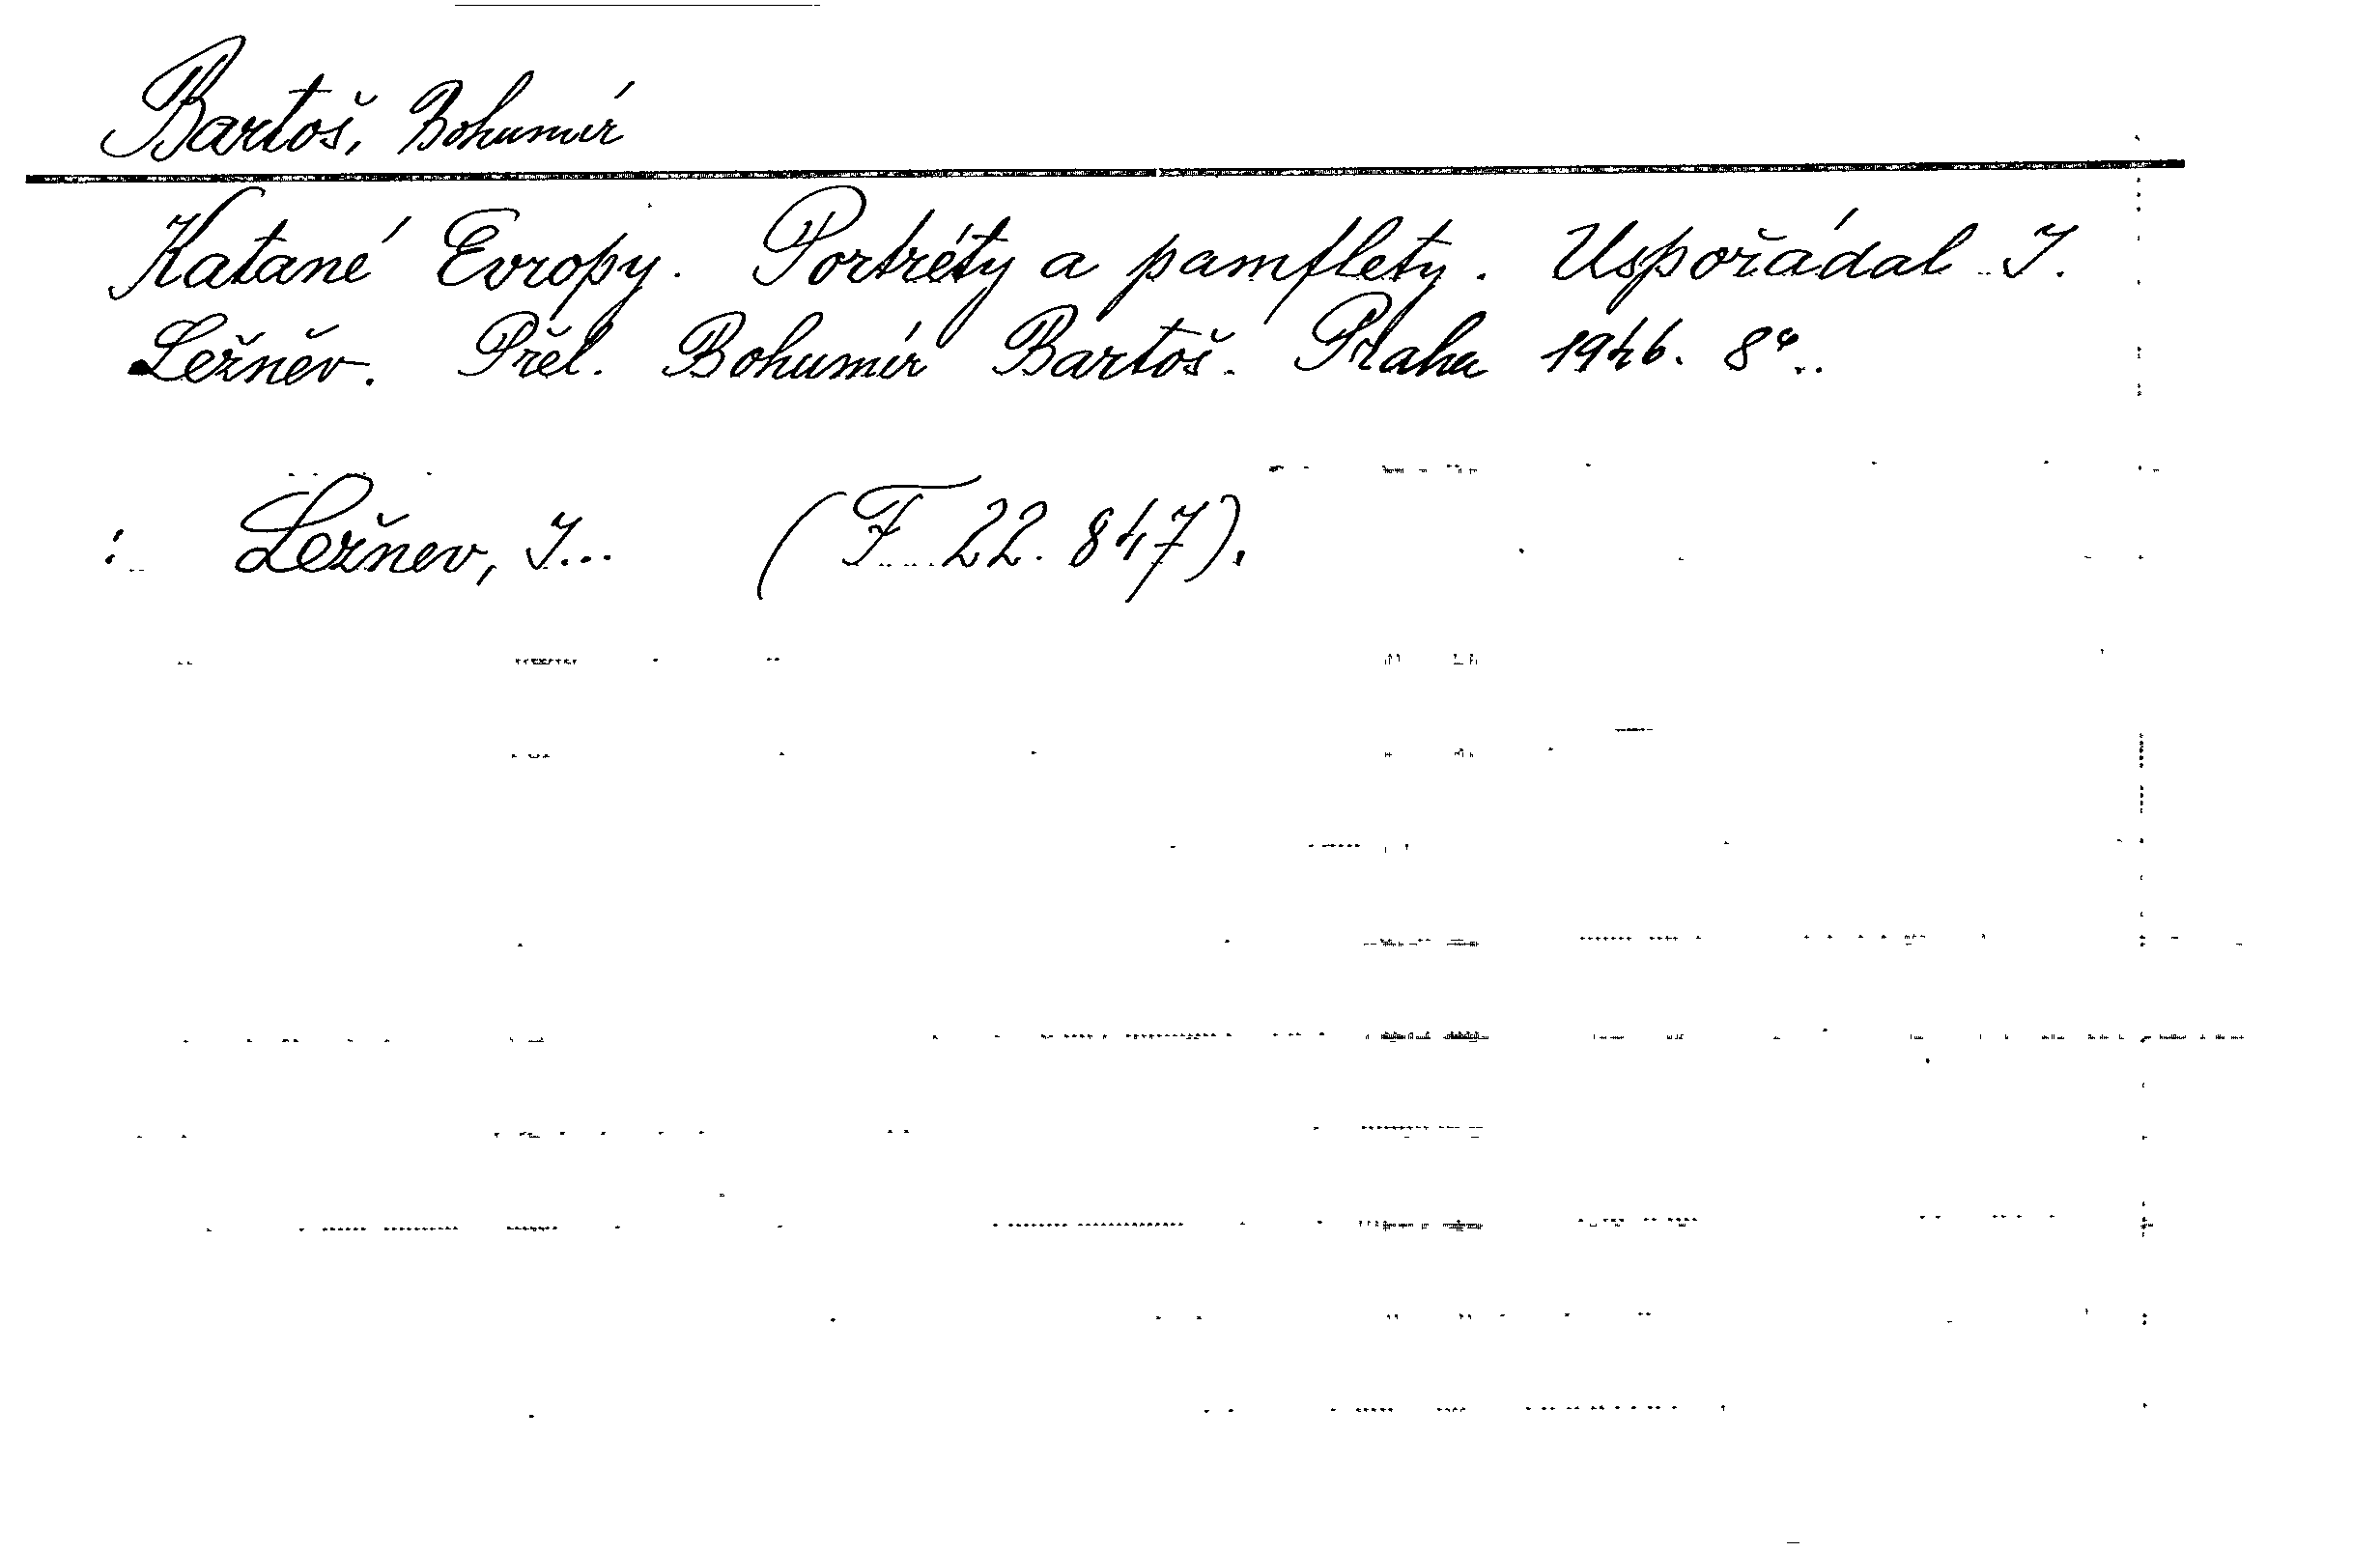 Bartoš, Bohumír
Katané Evropy. Portréty a pamflety. Uspořádal I.
Ležněv. Přel. Bohumír Bartoš. Praha 1946. 8°.
: Ležnev, I... (F 22.847).